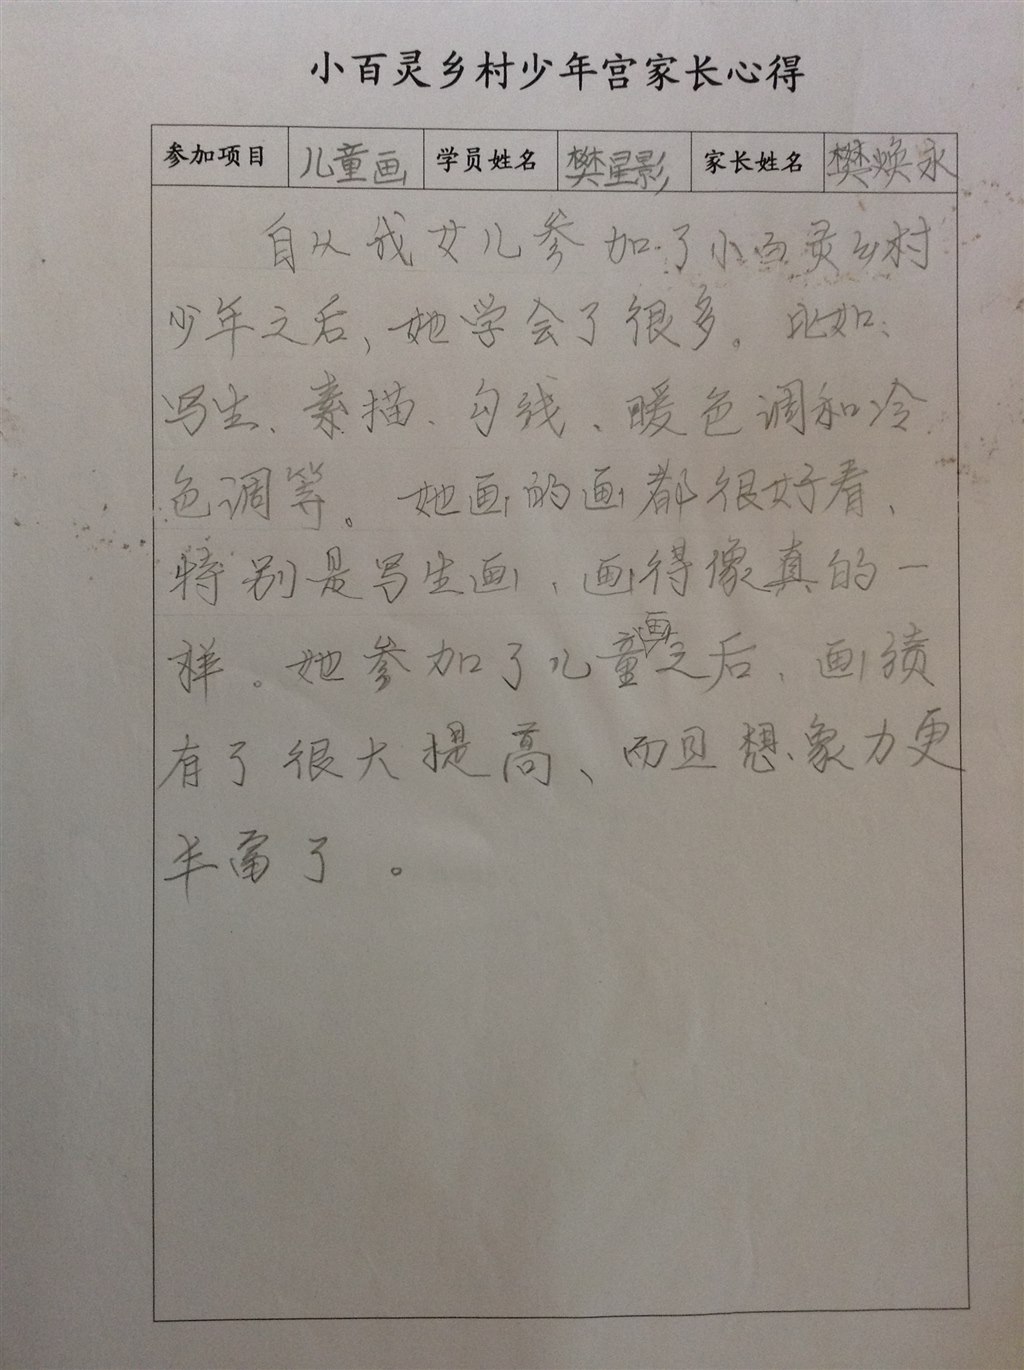 小百灵乡村少年宫家长心得
参加项目 儿童画 学员姓名 樊星影 家长姓名 樊焕永
自从我女儿参加了小百灵乡村
少年之后，她学会了很多。比如：
写生、素描、勾线、暖色调和冷
色调等。她画的画都很好看、
特别是写生画、画得像真的一
样。她参加了儿童画之后、画绩
有了很大提高、而且想象力更
丰富了。